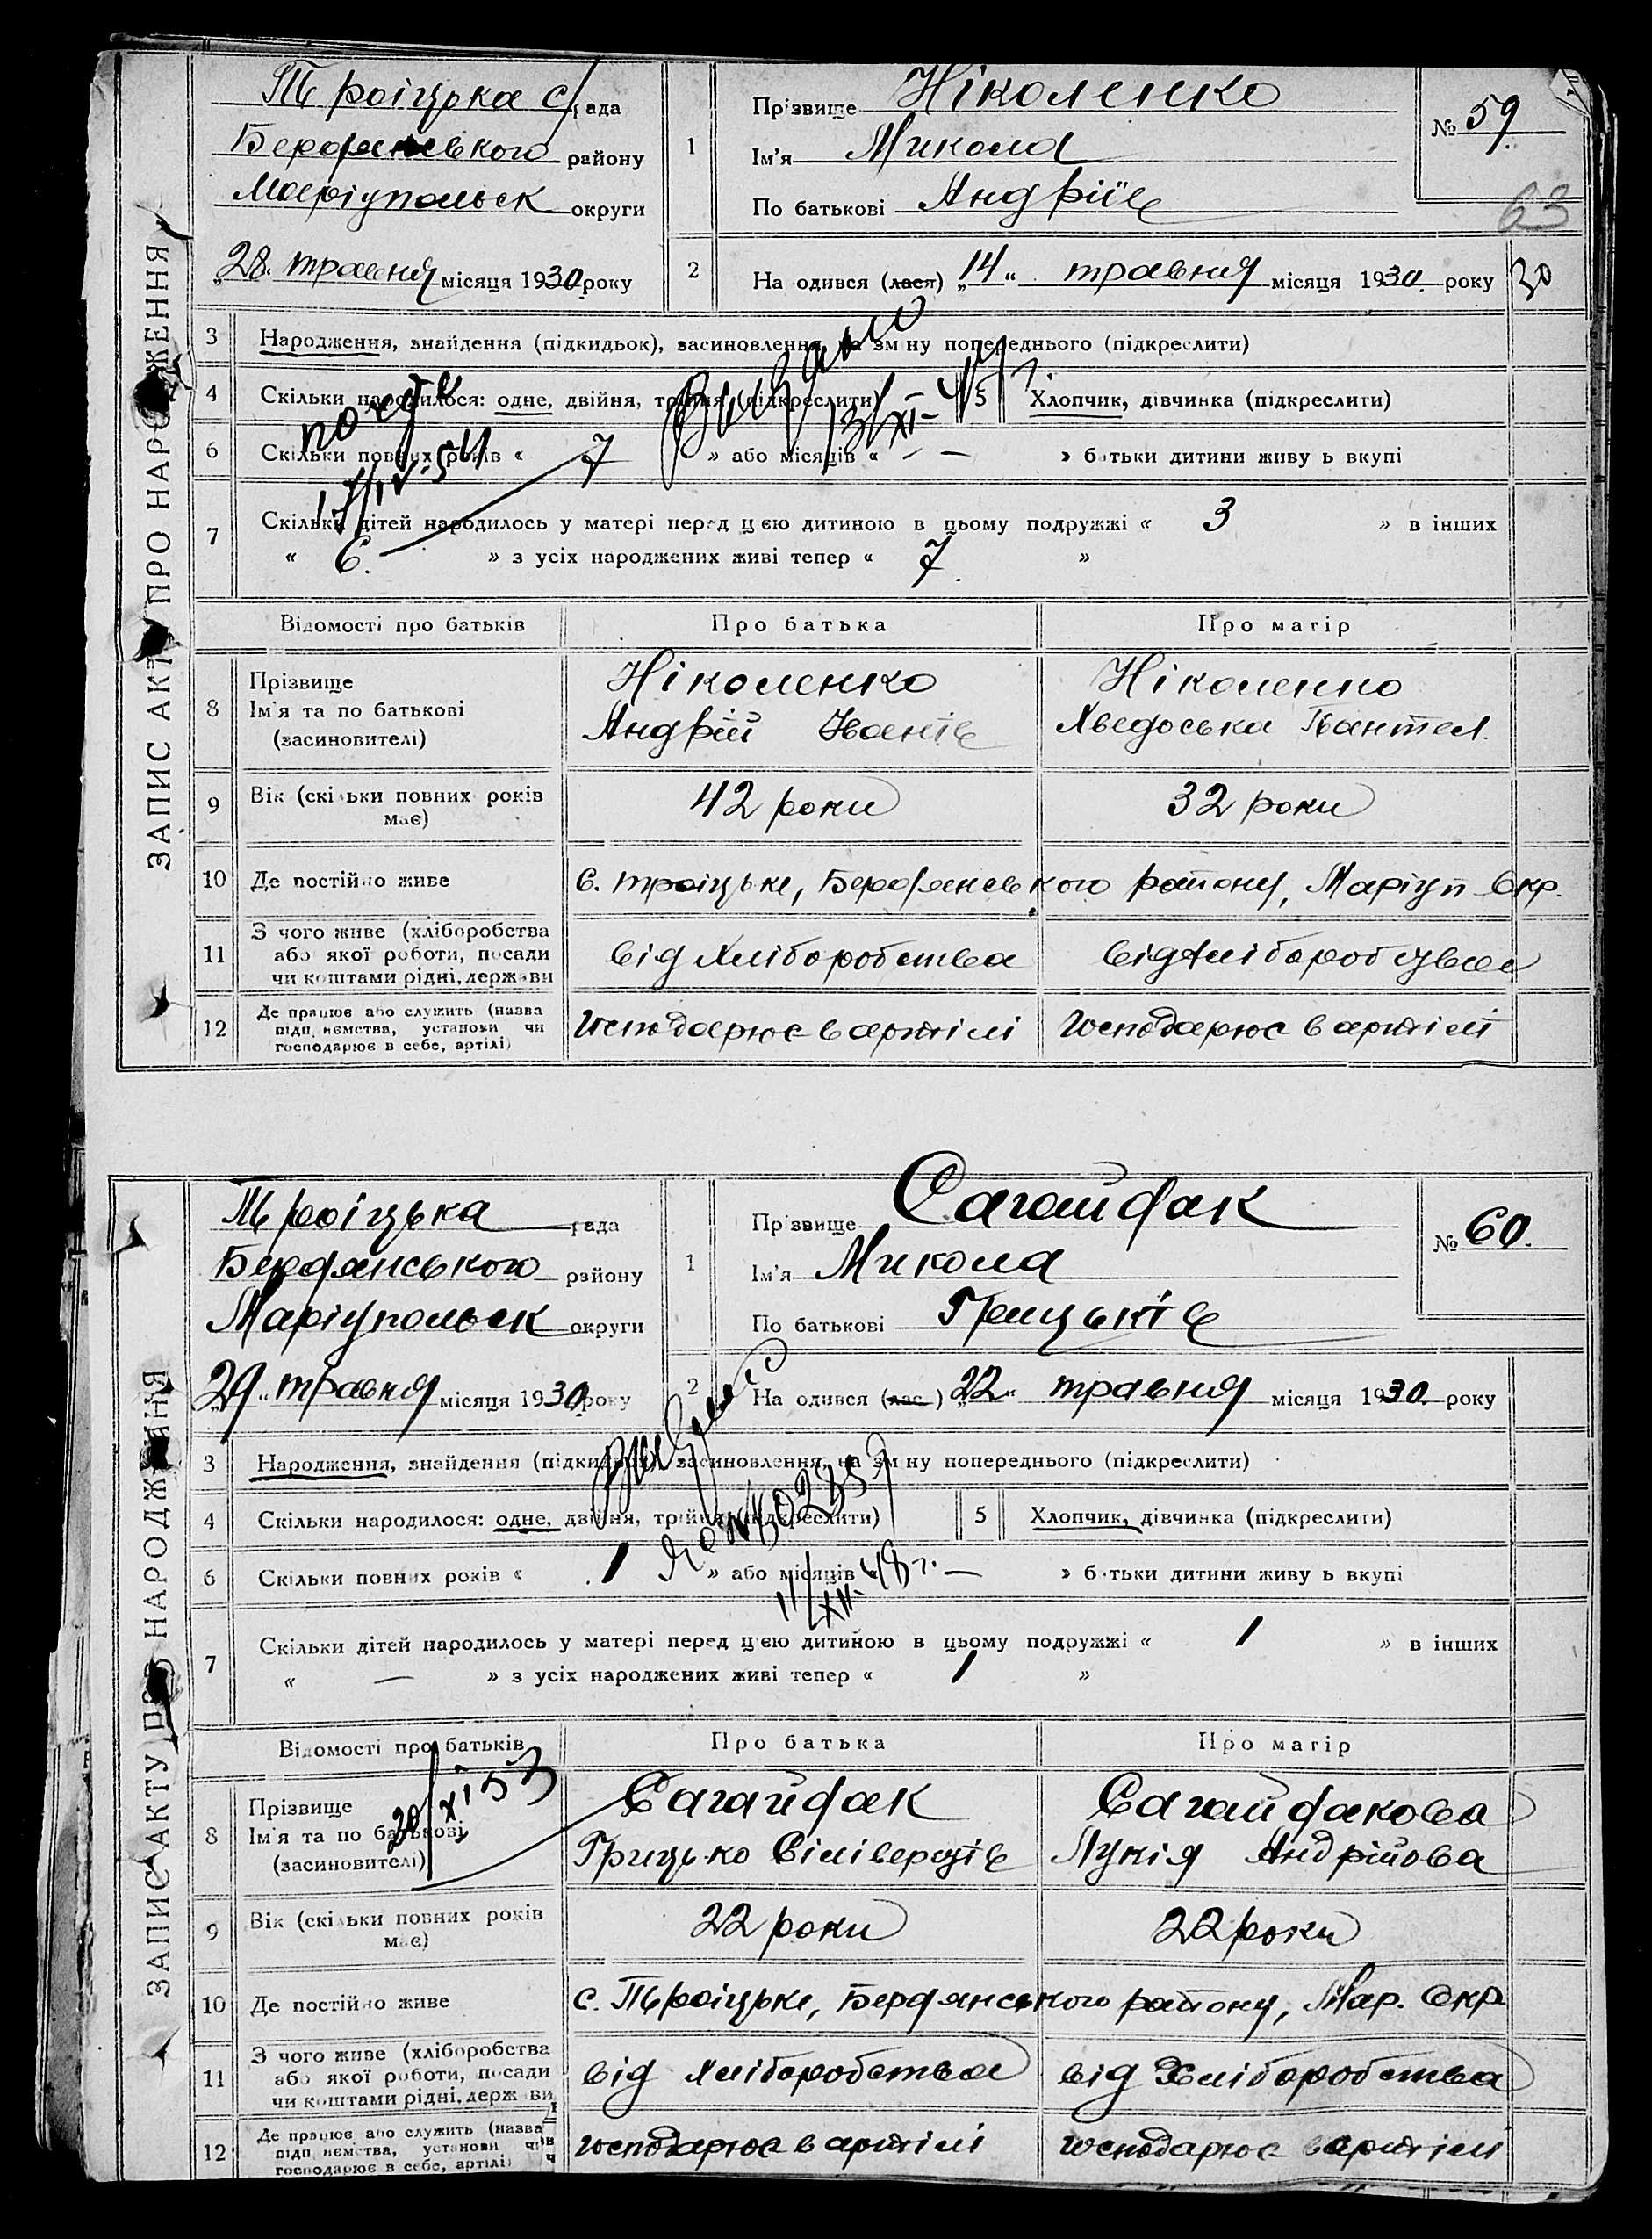 ЗАПИС АКТУ ПРО НАРОДЖЕННЯ
Троіцька с/рада
Бердянського району
Маріупольск округи
„28“ травня місяця 1930 року
1 Прізвище Ніколенко
Ім'я Микола
По батькові Андріїв
№ 59
63
2 На одився (лася) „14“ травня місяця 1930 року
30
3 Народження, знайдення (підкидьок), засиновлення, на зміну попереднього (підкреслити)
4 Скільки народилося: одне, двійня, трійня (підкреслити) 5 Хлопчик, дівчинка (підкреслити)
6 Скільки повних років « 7 » або місяців « — » батьки дитини живуть вкупі
Видано
13/XI-47 г.
17/IV-54
7 Скільки дітей народилось у матері перед цією дитиною в цьому подружжі « 3 » в інших
« 6. » з усіх народжених живі тепер « 7. »
Відомості про батьків Про батька Про матір
8 Прізвище Ніколенко Ніколенко
Ім'я та по батькові Андрій Іванів Хведоська Пантел.
(засиновителі)
9 Вік (скільки повних років має) 42 роки 32 роки
10 Де постійно живе с. Троіцьке, Бердянського району, Маріуп Окр.
11 З чого живе (хліборобства
або якої роботи, посади від хліборобства від хліборобства
чи коштами рідні, держави
12 Де працює або служить (назва
підприємства, установи чи Господарює в артілі Господарює в артілі
господарює в себе, артілі)
ЗАПИС АКТУ ПРО НАРОДЖЕННЯ
Троіцька рада
Бердянського району
Маріупольск округи
„29“ травня місяця 1930 року
1 Прізвище Сагайдак
Ім'я Микола
По батькові Грицьків
№ 60.
2 На одився (лас ) „22“ травня місяця 1930. року
3 Народження, знайдення (підкидьок), засиновлення, на зміну попереднього (підкреслити)
4 Скільки народилося: одне, двійня, трійня (підкреслити) 5 Хлопчик, дівчинка (підкреслити)
6 Скільки повних років « 1 » або місяців « — » батьки дитини живуть вкупі
11/XII-48 г.
7 Скільки дітей народилось у матері перед цією дитиною в цьому подружжі « 1 » в інших
« — » з усіх народжених живі тепер « 1 »
Відомості про батьків Про батька Про матір
20/XI 53
8 Прізвище Сагайдак Сагайдакова
Ім'я та по батькові Грицько Сілівергів Лукія Андрійова
(засиновителі)
9 Вік (скільки повних років має) 22 роки 22 роки
10 Де постійно живе с. Троіцьке, Бердянського району, Мар. Окр
11 З чого живе (хліборобства
або якої роботи, посади від хліборобства від Хліборобства
чи коштами рідні, держави
12 Де працює або служить (назва
підприємства, установи чи Господарює в артілі Господарює в артілі
господарює в себе, артілі)